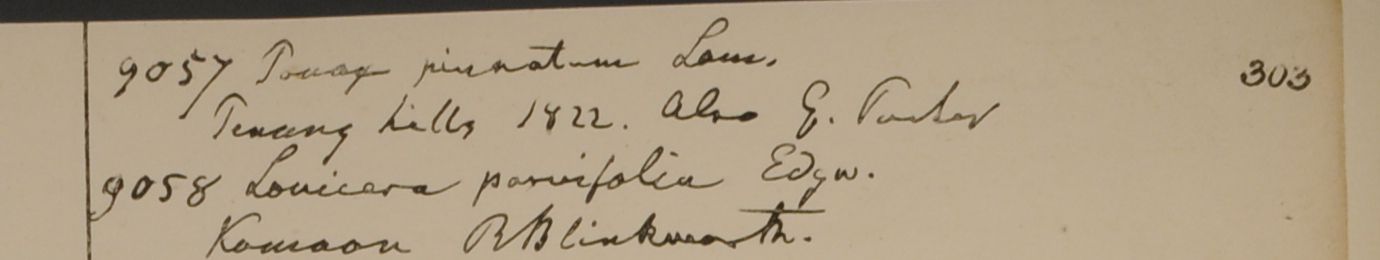 9057 Panax pinnatum Lam.
303
Penang hills 1822. Also G. Porter
9058 Lonicera parvifolia Edgw.
Kamaon RBlinkworth.